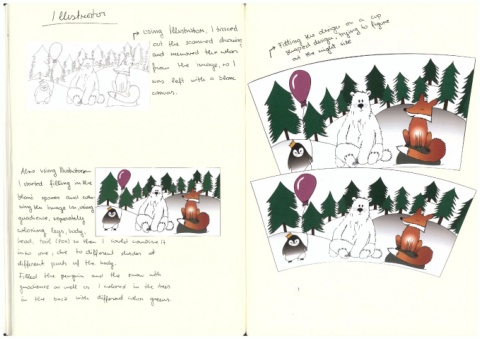 Illustrator
Using Illustrator, I traced
out the scanned drawing
and removed the white
from the image, so I
was left with a blank
canvas.
Also using Illustrator
I started filling in the
blank spaces and
the image in, using
gradience, separately
coloring legs, body,
head, tail (fox) so then I could combine it
into one, due to different shades at
different parts of the body.
Filled the penguin and the snow with
gradience as well as I colored in the trees
in the back with different color greens.
Fitting the design on a cup
shaped design, trying to figure
out the right size